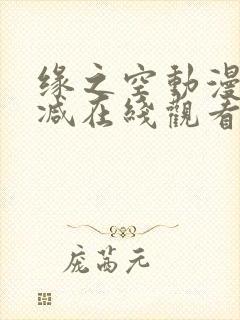 缘之空動漫
减在綫觀看
庞茜元